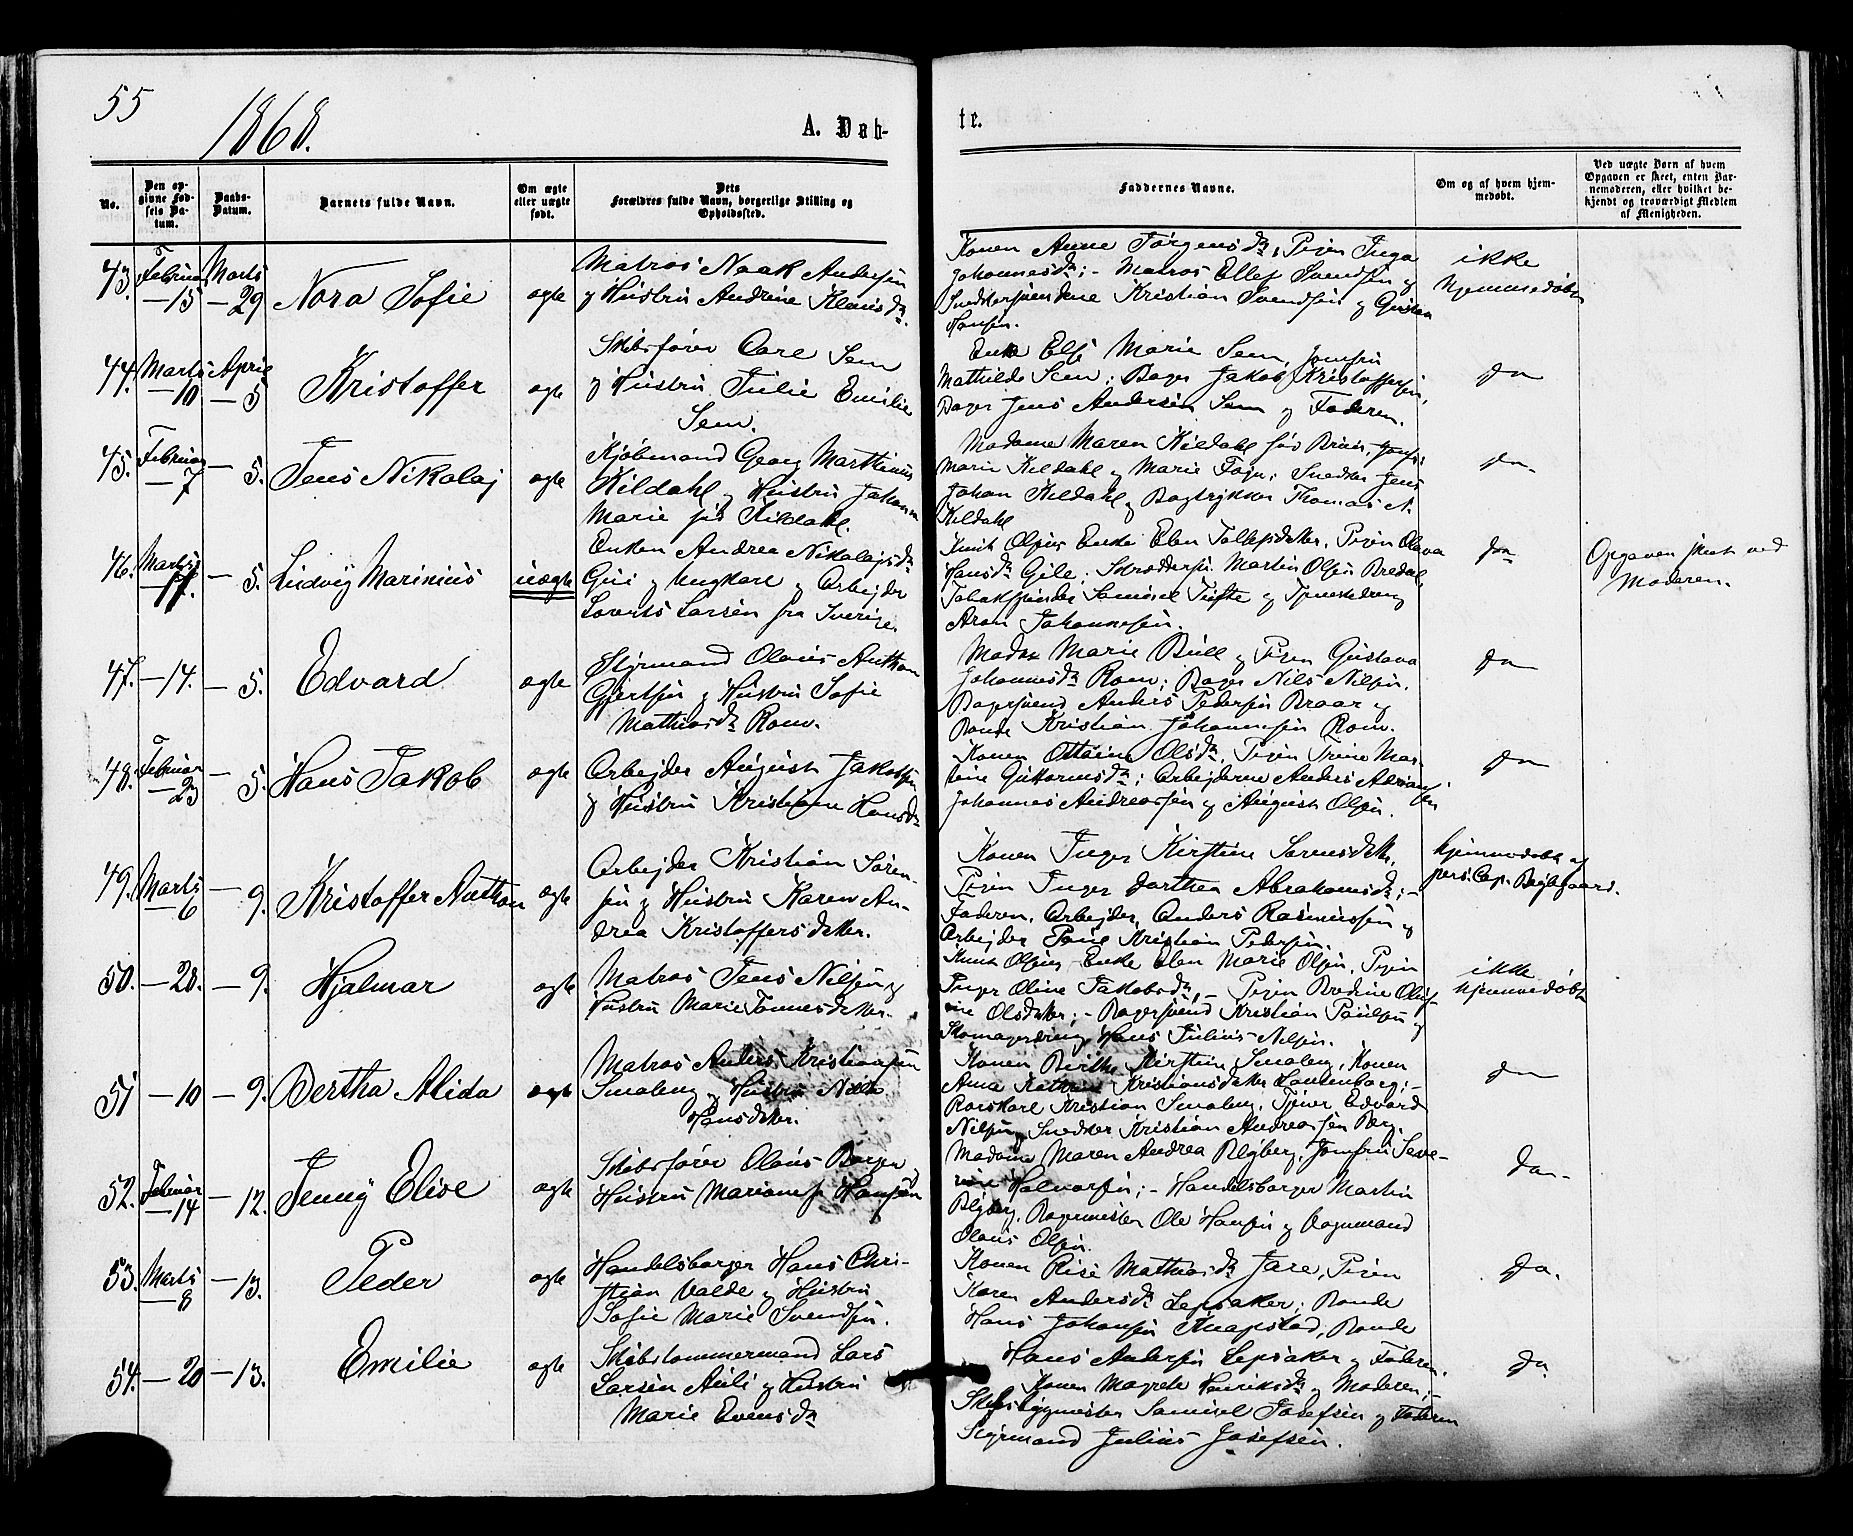 55
1868.
A. Døb-
te.
No.
Den op-
givne Fød-
sels Da-
tum.
Daabs-
Datum.
Barnets fulde Navn.
Om ægte
eller uægte
født.
Dets
Forældres fulde Navn, borgerlige Stilling og
Opholdssted.
Faddernes Navne.
Om og af hvem hjem-
medøbt.
Ved uægte Børn af hvem
Opgaven er skeet, enten Bar-
nemoderen, eller hvilket be-
kjendt og troværdigt Medlem
af Menigheden.
43. Februar
—15
Marts
—29
Nora Sofie
ægte
Matros Noak Andersen
og Hustru Andrine Klausdr.
Konen Anne Jörgensdr, Pigen Inga
Johannesdr; - Matros Ellef Svendsen og
Snedkersvendene Kristian Svendsen og Gustav
Hansen.
ikke
hjemmedøbt
44. Marts
—10
April
—5
Kristoffer
ægte
Skibsfører Carl Sem
og Hustru Julie Emilie
Sem.
Enke Else Marie Sem, Jomfru
Mathilde Sem; Bager Jakob Kristoffersen,
Bager Jens Andersen Sem og Faderen.
do
45. Februar
—7
—5.
Jens Nikolaj
ægte
Kjøbmand Georg Marthinus
Kildahl og Hustru Johanne
Marie fød Kildahl.
Madame Maren Kildahl fød Bruun, Jomfr:
Marie Kildahl og Marie Foyn; Snedker Jens
Johan Kildahl og Bogtrykker Thomas N.
Kildahl
do.
46. Marts
—11.
—5.
Ludvig Marinius
uægte
Enken Andrea Nikolajsdr
Gusi og Ungkarl og Arbejder
Lovents Larsen fra Sverige.
Knut Olsens Enke Elen Tollefsdatter, Pigen Olava
Hansdr Gile; Skræddersv. Martin Olsen Bredal
Tobakspinder Samuel Tufte og Tjenestedreng
Aron Johannesen.
do
Opgaven skeet ved
Moderen.
47. —14.
—5.
Edvard
ægte
Styrmand Olaus Anthon
Gjertsen og Hustru Sofie
Mathiasdr Rom.
Madm Marie Bull og Pigen Gustava
Johannesdr Rom; Bager Nils Nilsen,
Bagersvend Anders Pedersen Braar og
Bonde Kristian Johannesen Rom.
do
48. Februar
—23
—5.
Hans Jakob
ægte
Arbejder August Jakobsen
og Hustru Kristiane Hansdr
Konen Ottoine Olsdr, Pigen Trine Mar-
tine Guttormsdr; Arbejderne Anders Adriansen
Johannes Andreassen og August Olsen.
do
49. Marts
—6
—9.
Kristoffer Anthon
ægte
Arbejder Kristian Sören-
sen og Hustru Karen An-
drea Kristoffersdatter.
Konen Inger Kirstine Sørensdatter,
Pigen Inger Dorthea Abrahamsdr; -
Faderen, Arbejder Anders Rasmussen og
Arbejder Poul Kristian Pedersen.
hjemmedøbt af
pers. Cap. Bugdgaard.
50. —28.
—9.
Hjalmar
ægte
Matros Jens Nilsen og
Hustru Marie Tommesdatter.
Knut Olsens Enke Elen Marie Olsen, Pigen
Inger Oline Jakobsdr, — Pigen Bredine Oluf-
ine Olsdatter; - Bagersvend Kristian Poulsen og
Skomagerdreng Hans Julius Nilsen.
ikke
hjemmedøbt
51 —10
—9.
Bertha Alida
ægte
Matros Anders Kristiansen
Smaberg og Hustru
Hansdatter.
Konen Birthe Kirstine Smaberg, Konen
Anna Kathrine Kristiansdatter; -
Kristian Smaberg, Tjener Edvard
Nilsen, Snedker Kristian Andreassen Berg.
do
52. Februar
—14
—12.
Jenny Elise
ægte
Skibsfører Olaus Borgen og
Hustru Mariane f. Hansen
Madame Maren Andrea Blyberg, Jomfru Seve-
rine Halvorsen; - Handelsborger Martin
Blyberg, Bagermester Ole Hansen og Vognmand
Olaus Olsen.
do-
53. Marts
—8
—13.
Peder
ægte
Handelsborger Hans Chri-
stian Valde og Hustru
Sofie Marie Svendsen.
Konen Risé Mathiasdr Jare, Pigen
Karen Andersdr Lepsaker; Bonde
Hans Johansen Knapstad, Bonde
Hans Andersen Lepsaker og Faderen.
do.
54. —20
—13.
Emilie
ægte
Skibstømmermand Lars
Larsen Auli og Hustru
Marie Evensdr
Konen Magrete Henriksdr og Moderen; -
Skibsbygmester Samuel Josefsen og Faderen
Styrmand Julius Josefsen.
do.